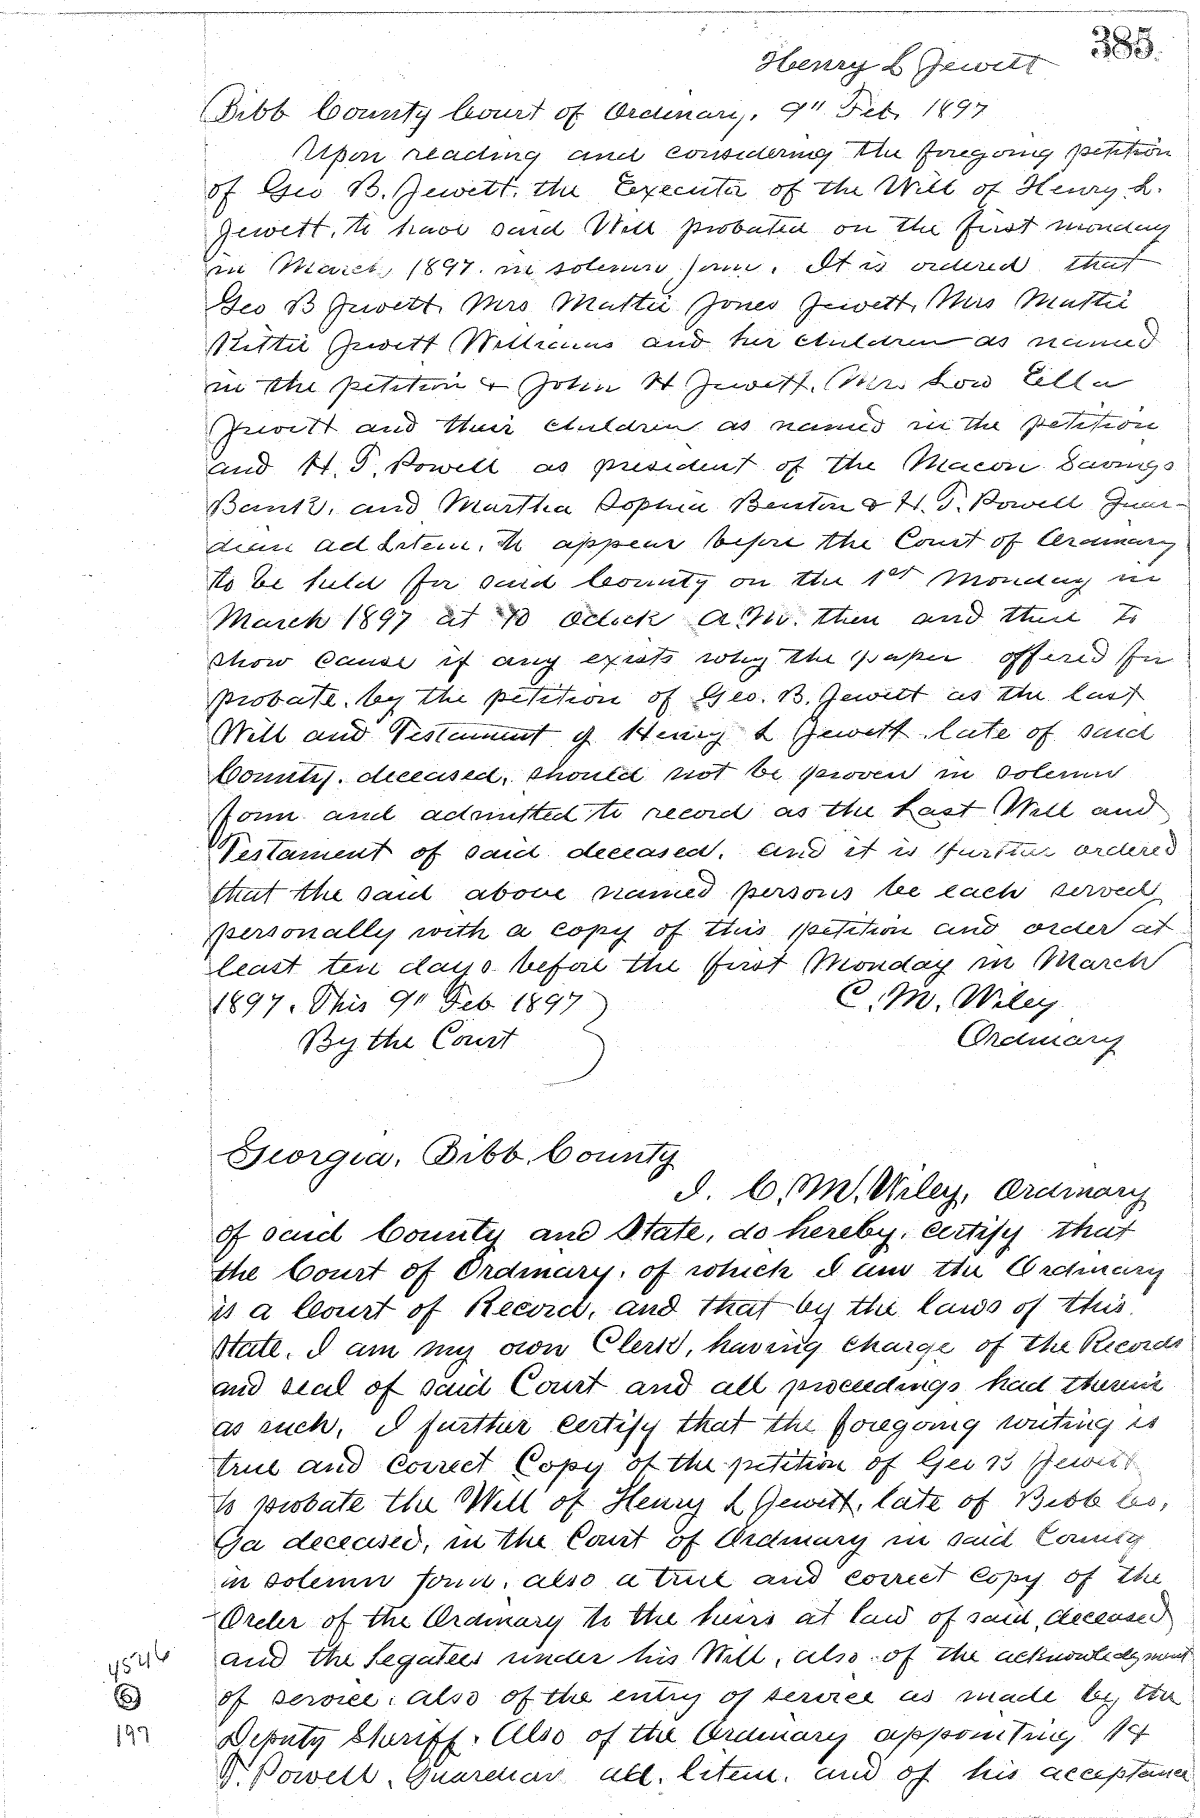 385.
Henry L Jewett
Bibb County Court of Ordinary, 9" Feb, 1897
Upon reading and considering the foregoing petition
of Geo B. Jewett, the Executor of the Will of Henry L.
Jewett, to have said Will probated on the first monday
in March, 1897. in solemn form. It is ordered that
Geo B Jewett, Mrs Mattie Jones Jewett, Mrs Mattie
Kittie Jewett Williams and her children as named
in the petition & John H Jewett, Mrs Lou Ella
Jewett and their children as named in the petition
and H. T. Powell as president of the Macon Savings
Bank, and Martha Sophia Benton & H. T. Powell Guar-
dian ad Litem, to appear before the Court of Ordinary
to be held for said County on the 1st Monday in
March 1897 at 10 Oclock A.M. then and there to
show cause if any exists why the paper offered for
probate, by the petition of Geo. B. Jewett as the last
Will and Testament of Henry L Jewett late of said
County, deceased, should not be proven in solemn
form and admitted to record as the Last Will and
Testament of said deceased, and it is further ordered
that the said above named persons be each served
personally with a copy of this petition and order at
least ten days before the first Monday in March
1897. This 9" Feb 1897 C. M. Wiley
By the Court Ordinary
Georgia, Bibb, County
I. C. M. Wiley, Ordinary
of said County and State, do hereby, certify that
the Court of Ordinary, of which I am the Ordinary
is a Court of Record, and that by the laws of this
State, I am my own Clerk, having charge of the Records
and seal of said Court and all proceedings had therein
as such, I further certify that the foregoing writing is
true and correct Copy of the petition of Geo B Jewett
to probate the Will of Henry L Jewett, late of Bibb Co,
Ga deceased, in the Court of Ordinary in said County
in solemn form, also a true and correct copy of the
Order of the Ordinary to the heirs at law of said deceased
and the legatees under his Will, also of the acknowledgment
of service, also of the entry of service as made by the
Deputy Sheriff. Also of the Ordinary appointing H
T. Powell, Guardian ad. litem, and of his acceptance
4546
6
197